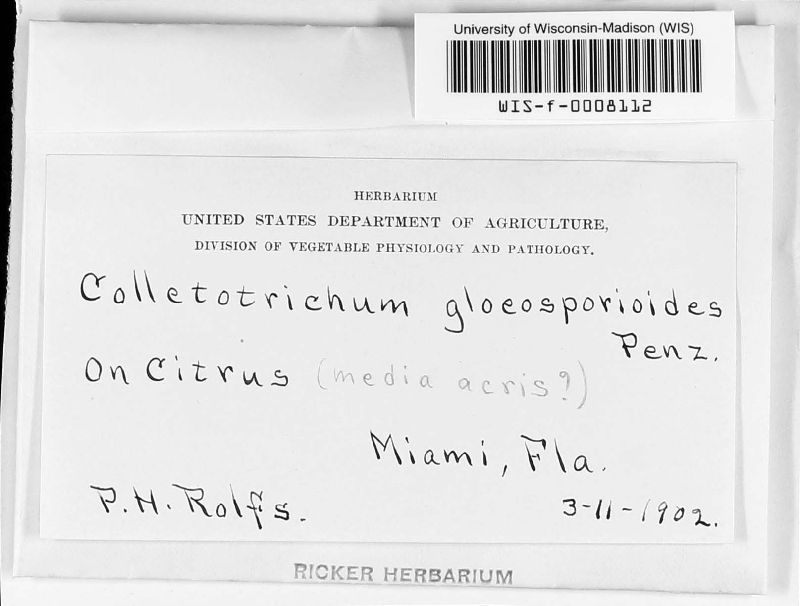 University of Wisconsin-Madison (WIS)
WIS-f-0008112
HERBARIUM
UNITED STATES DEPARTMENT OF AGRICULTURE,
DIVISION OF VEGETABLE PHYSIOLOGY AND PATHOLOGY.
Colletotrichum gloeosporioides
Penz.
On Citrus (media acris?)
Miami, Fla.
P.H. Rolfs.
3-11-1902.
RICKER HERBARIUM